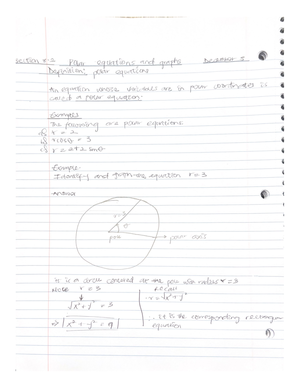 Section 8.2 Polar equations and graphs December 5
Definition: polar equations
An equation whose variables are in polar coordinates is
called a polar equation.
Example
The following are polar equations
r = 2
r cos θ = 3
r = 2 + 2 sin θ
Example
Identify and graph the equation r = 3
Answer
r=3
θ
pole → polar axis
It is a circle centered at the pole with radius r = 3
Note r = 3
Recall
√x²+y² = 3
r = √x²+y²
⇒ x² + y² = 9
It is the corresponding rectangular
equation